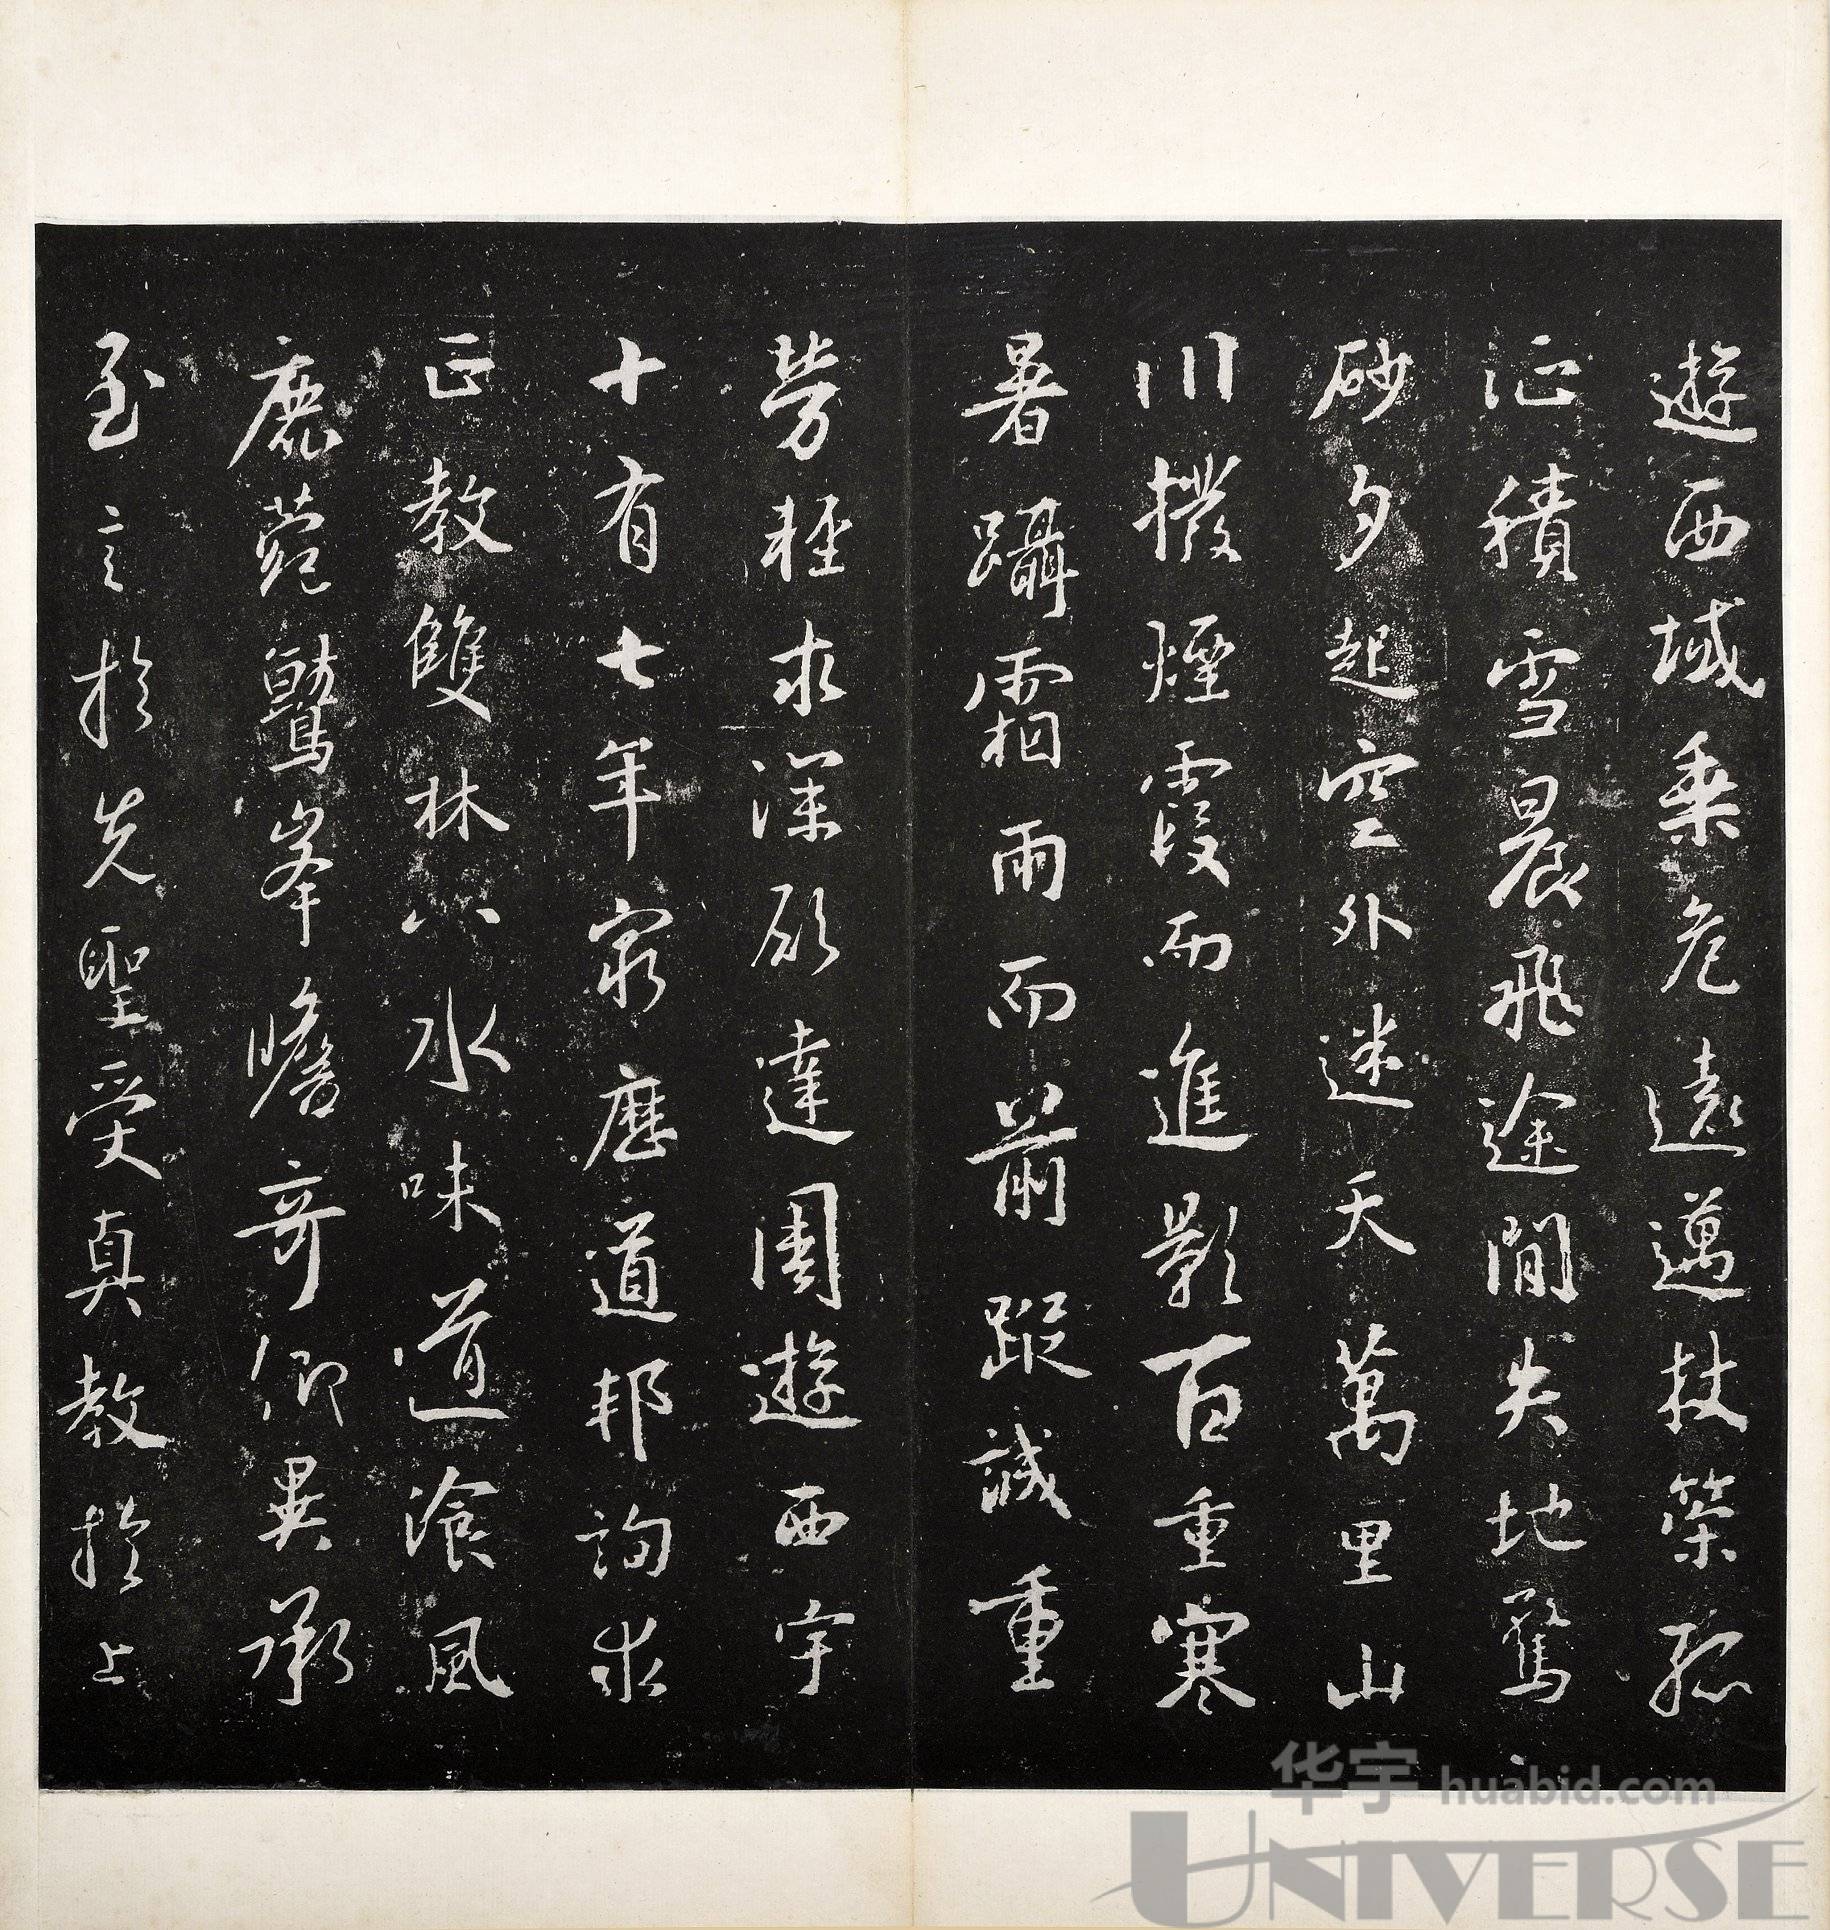 遊西域乗危遠邁杖策孤
征積雪晨飛途間失地驚
砂夕起空外迷天萬里山
川撥煙霞而進影百重寒
暑躡霜雨而前蹤誠重
勞輕求深願達周遊西宇
十有七年窮歷道邦詢求
正教雙林八水味道飡風
鹿菀鷲峯瞻奇仰異承
至言於先聖受真教於上
华宇 huabid.com
UNIVERSE